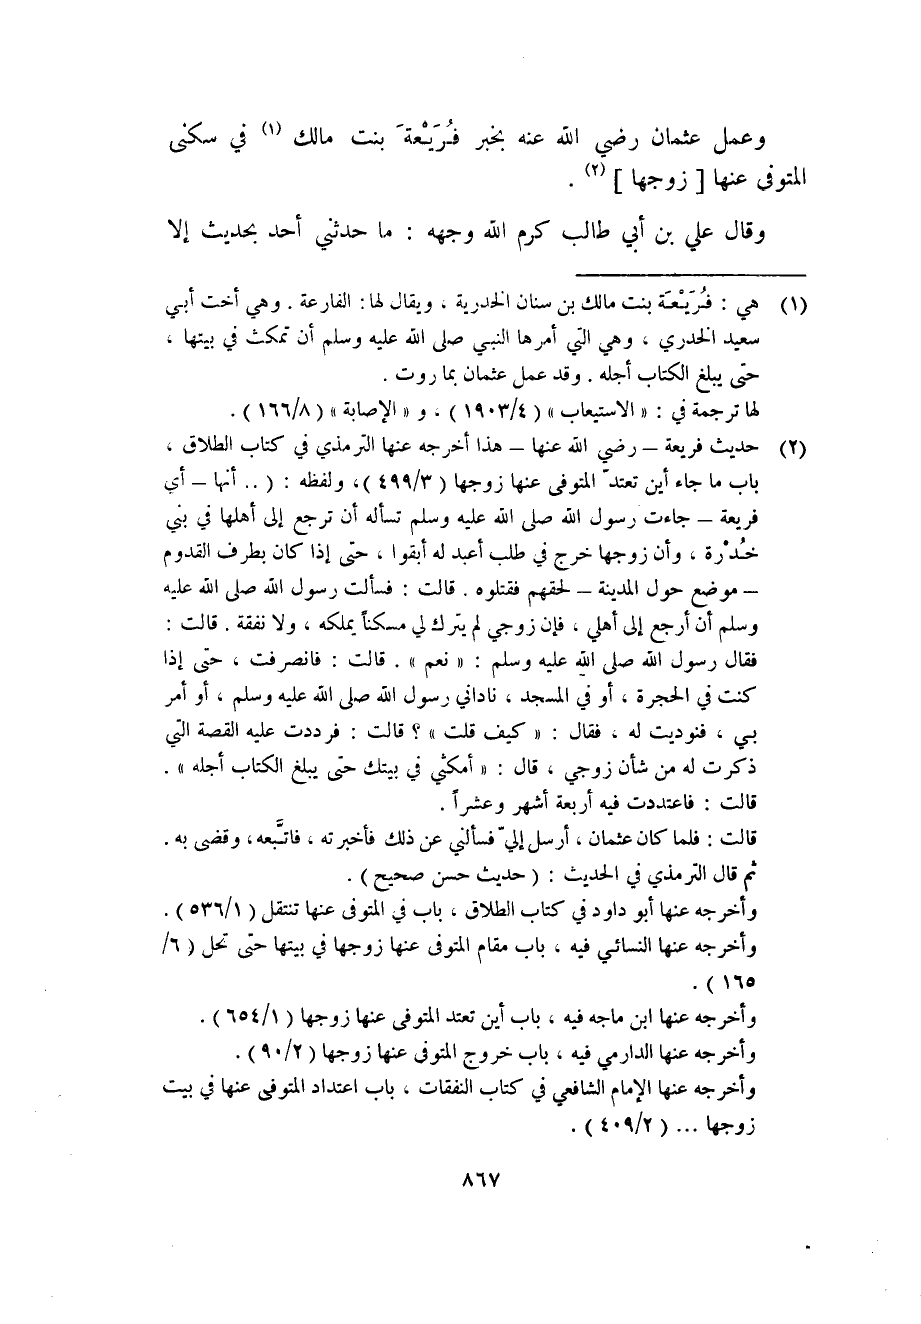 وعمل عثمان رضي الله عنه بخبر فُرَيْعةَ بنت مالك (١) في سكنى
المتوفى عنها [ زوجها ] (٢) .
وقال علي بن أبي طالب كرم الله وجهه : ما حدثني أحد بحديث إلا
(١) هي : فُرَيْعَة بنت مالك بن سنان الخدرية ، ويقال لها : الفارعة . وهي أخت أبي
سعيد الخدري ، وهي التي أمرها النبي صلى الله عليه وسلم أن تمكث في بيتها ،
حتى يبلغ الكتاب أجله . وقد عمل عثمان بما روت .
لها ترجمة في : « الاستيعاب » ( ١٩٠٣/٤ ) ، و « الإصابة » ( ١٦٦/٨ ) .
(٢) حديث فريعة – رضي الله عنها – هذا أخرجه عنها الترمذي في كتاب الطلاق ،
باب ما جاء أين تعتدّ المتوفى عنها زوجها ( ٤٩٩/٣ )، ولفظه : ( .. أنها – أي
فريعة – جاءت رسول الله صلى الله عليه وسلم تسأله أن ترجع إلى أهلها في بني
خُدْرة ، وأن زوجها خرج في طلب أعبد له أبقوا ، حتى إذا كان بطرف القدوم
– موضع حول المدينة – لحقهم فقتلوه . قالت : فسألت رسول الله صلى الله عليه
وسلم أن أرجع إلى أهلي ، فإن زوجي لم يترك لي مسكناً يملكه ، ولا نفقة . قالت :
فقال رسول الله صلى الله عليه وسلم : « نعم » . قالت : فانصرفت ، حتى إذا
كنت في الحجرة ، أو في المسجد ، ناداني رسول الله صلى الله عليه وسلم ، أو أمر
بي ، فنوديت له ، فقال : « كيف قلت » ؟ قالت : فرددت عليه القصة التي
ذكرت له من شأن زوجي ، قال : « أمكثي في بيتك حتى يبلغ الكتاب أجله » .
قالت : فاعتددت فيه أربعة أشهر وعشراً .
قالت : فلما كان عثمان ، أرسل إليّ فسألني عن ذلك فأخبرته ، فاتَّبعه، وقضى به .
ثم قال الترمذي في الحديث : ( حديث حسن صحيح ) .
وأخرجه عنها أبو داود في كتاب الطلاق ، باب في المتوفى عنها تنتقل ( ٥٣٦/١ ) .
وأخرجه عنها النسائي فيه ، باب مقام المتوفى عنها زوجها في بيتها حتى تحل ( ٦/
١٦٥ ) .
وأخرجه عنها ابن ماجه فيه ، باب أين تعتد المتوفى عنها زوجها ( ٦٥٤/١ ) .
وأخرجه عنها الدارمي فيه ، باب خروج المتوفى عنها زوجها ( ٩٠/٢ ) .
وأخرجه عنها الإمام الشافعي في كتاب النفقات ، باب اعتداد المتوفى عنها في بيت
زوجها ... ( ٤٠٩/٢ ) .
٨٦٧